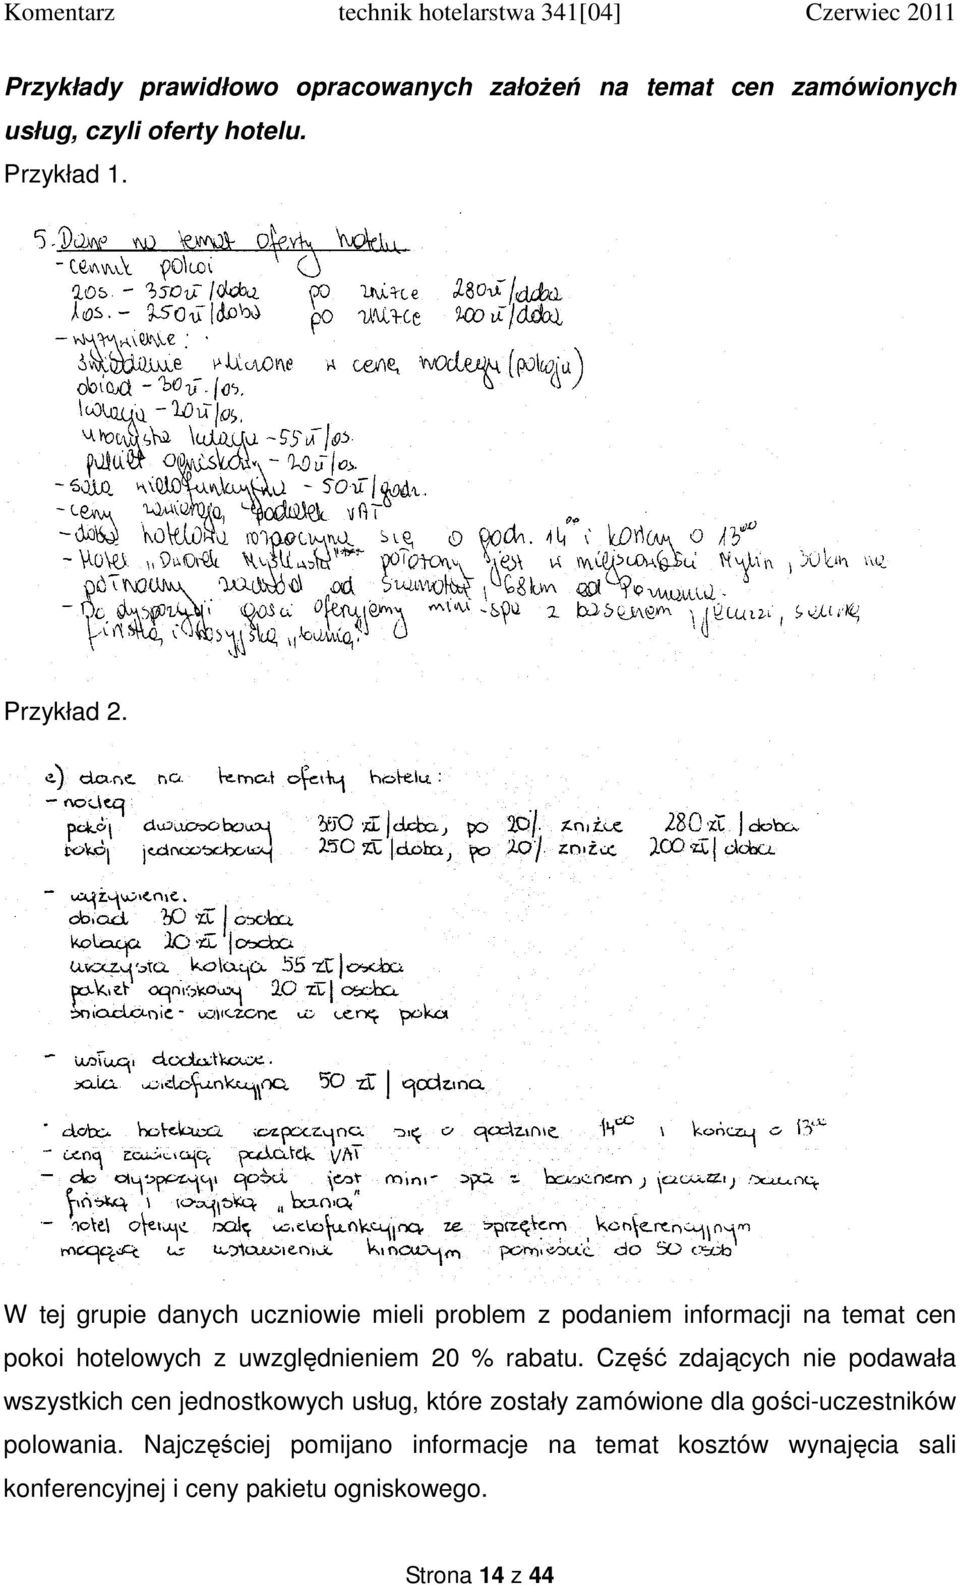 Komentarz technik hotelarstwa 341[04] Czerwiec 2011
Przykłady prawidłowo opracowanych założeń na temat cen zamówionych
usług, czyli oferty hotelu.
Przykład 1.
5. Dane na temat oferty hotelu
- cennik pokoi
2os. - 350zł/doba po zniżce 280zł/doba
1os. - 250zł/doba po zniżce 200zł/doba
- wyżywienie:
śniadanie wliczone w cenę noclegu (pokoju)
obiad - 30zł./os.
kolacja - 20zł/os.
uroczysta kolacja - 55zł/os.
pakiet ogniskowy - 20zł/os.
- sala wielofunkcyjna - 50zł/godz.
- ceny zawierają podatek VAT
- doba hotelowa rozpoczyna się o godz. 14⁰⁰ i kończy o 13⁰⁰
- Hotel "Dworek Myśliwski" położony jest w miejscowości Mylin, 30km na
północny zachód od Szamotuł, 68km od Poznania.
- Do dyspozycji gości oferujemy mini-spa z basenem, jacuzzi, saunę
fińską i rosyjską "banię".
Przykład 2.
e) dane na temat oferty hotelu:
- nocleg
pokój dwuosobowy 350 zł/doba, po 20% zniżce 280 zł/doba
pokój jednoosobowy 250 zł/doba, po 20% zniżce 200 zł/doba
- wyżywienie.
obiad 30 zł/osoba
kolacja 20 zł/osoba
uroczysta kolacja 55 zł/osoba
pakiet ogniskowy 20 zł/osoba
śniadanie - wliczone w cenę pokoi
- usługi dodatkowe.
sala wielofunkcyjna 50 zł/godzina
- doba hotelowa rozpoczyna się o godzinie 14⁰⁰ i kończy o 13⁰⁰
- ceny zawierają podatek VAT
- do dyspozycji gości jest mini-spa z basenem, jacuzzi, sauną
fińską i rosyjską "bania"
- hotel oferuje salę wielofunkcyjną ze sprzętem konferencyjnym
mogącą w ustawieniu kinowym pomieścić do 50 osób
W tej grupie danych uczniowie mieli problem z podaniem informacji na temat cen
pokoi hotelowych z uwzględnieniem 20 % rabatu. Część zdających nie podawała
wszystkich cen jednostkowych usług, które zostały zamówione dla gości-uczestników
polowania. Najczęściej pomijano informacje na temat kosztów wynajęcia sali
konferencyjnej i ceny pakietu ogniskowego.
Strona 14 z 44